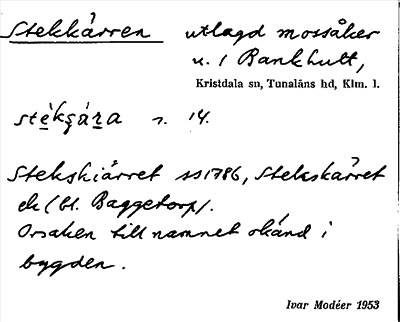 Stekkärren utlagd mossåker
u. 1 Bankhult,
Kristdala sn, Tunaläns hd, Klm. l.
stékʂára n. 14.
Stekskiärret ss 1786, Stekskärret
ek (bl. Baggetorp).
Orsaken till namnet okänd i
bygden.
Ivar Modéer 1953